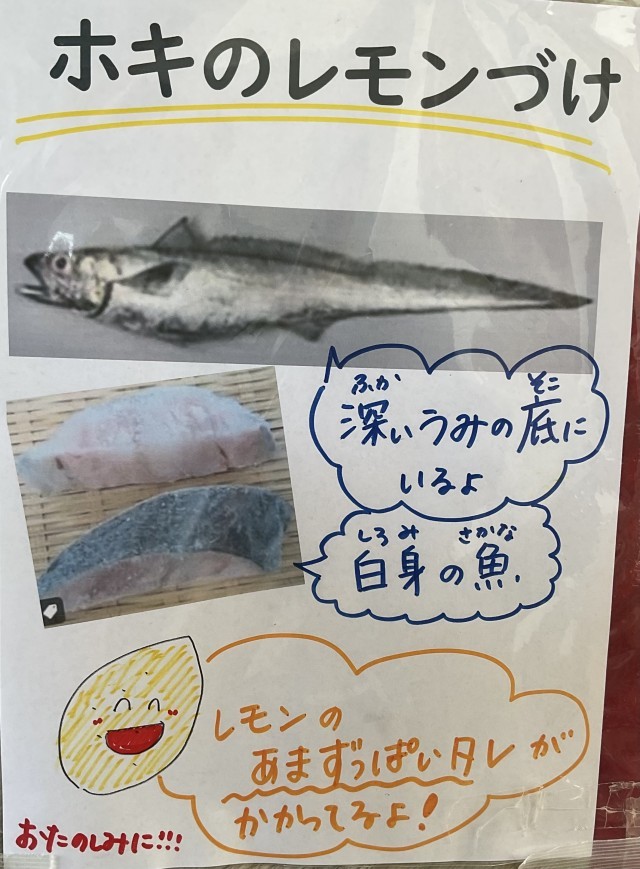 ホキのレモンづけ
ふか そこ
深いうみの底に
いるよ
しろみ さかな
白身の魚.
レモンの
あまずっぱいタレが
かかってるよ!
おたのしみに!!!